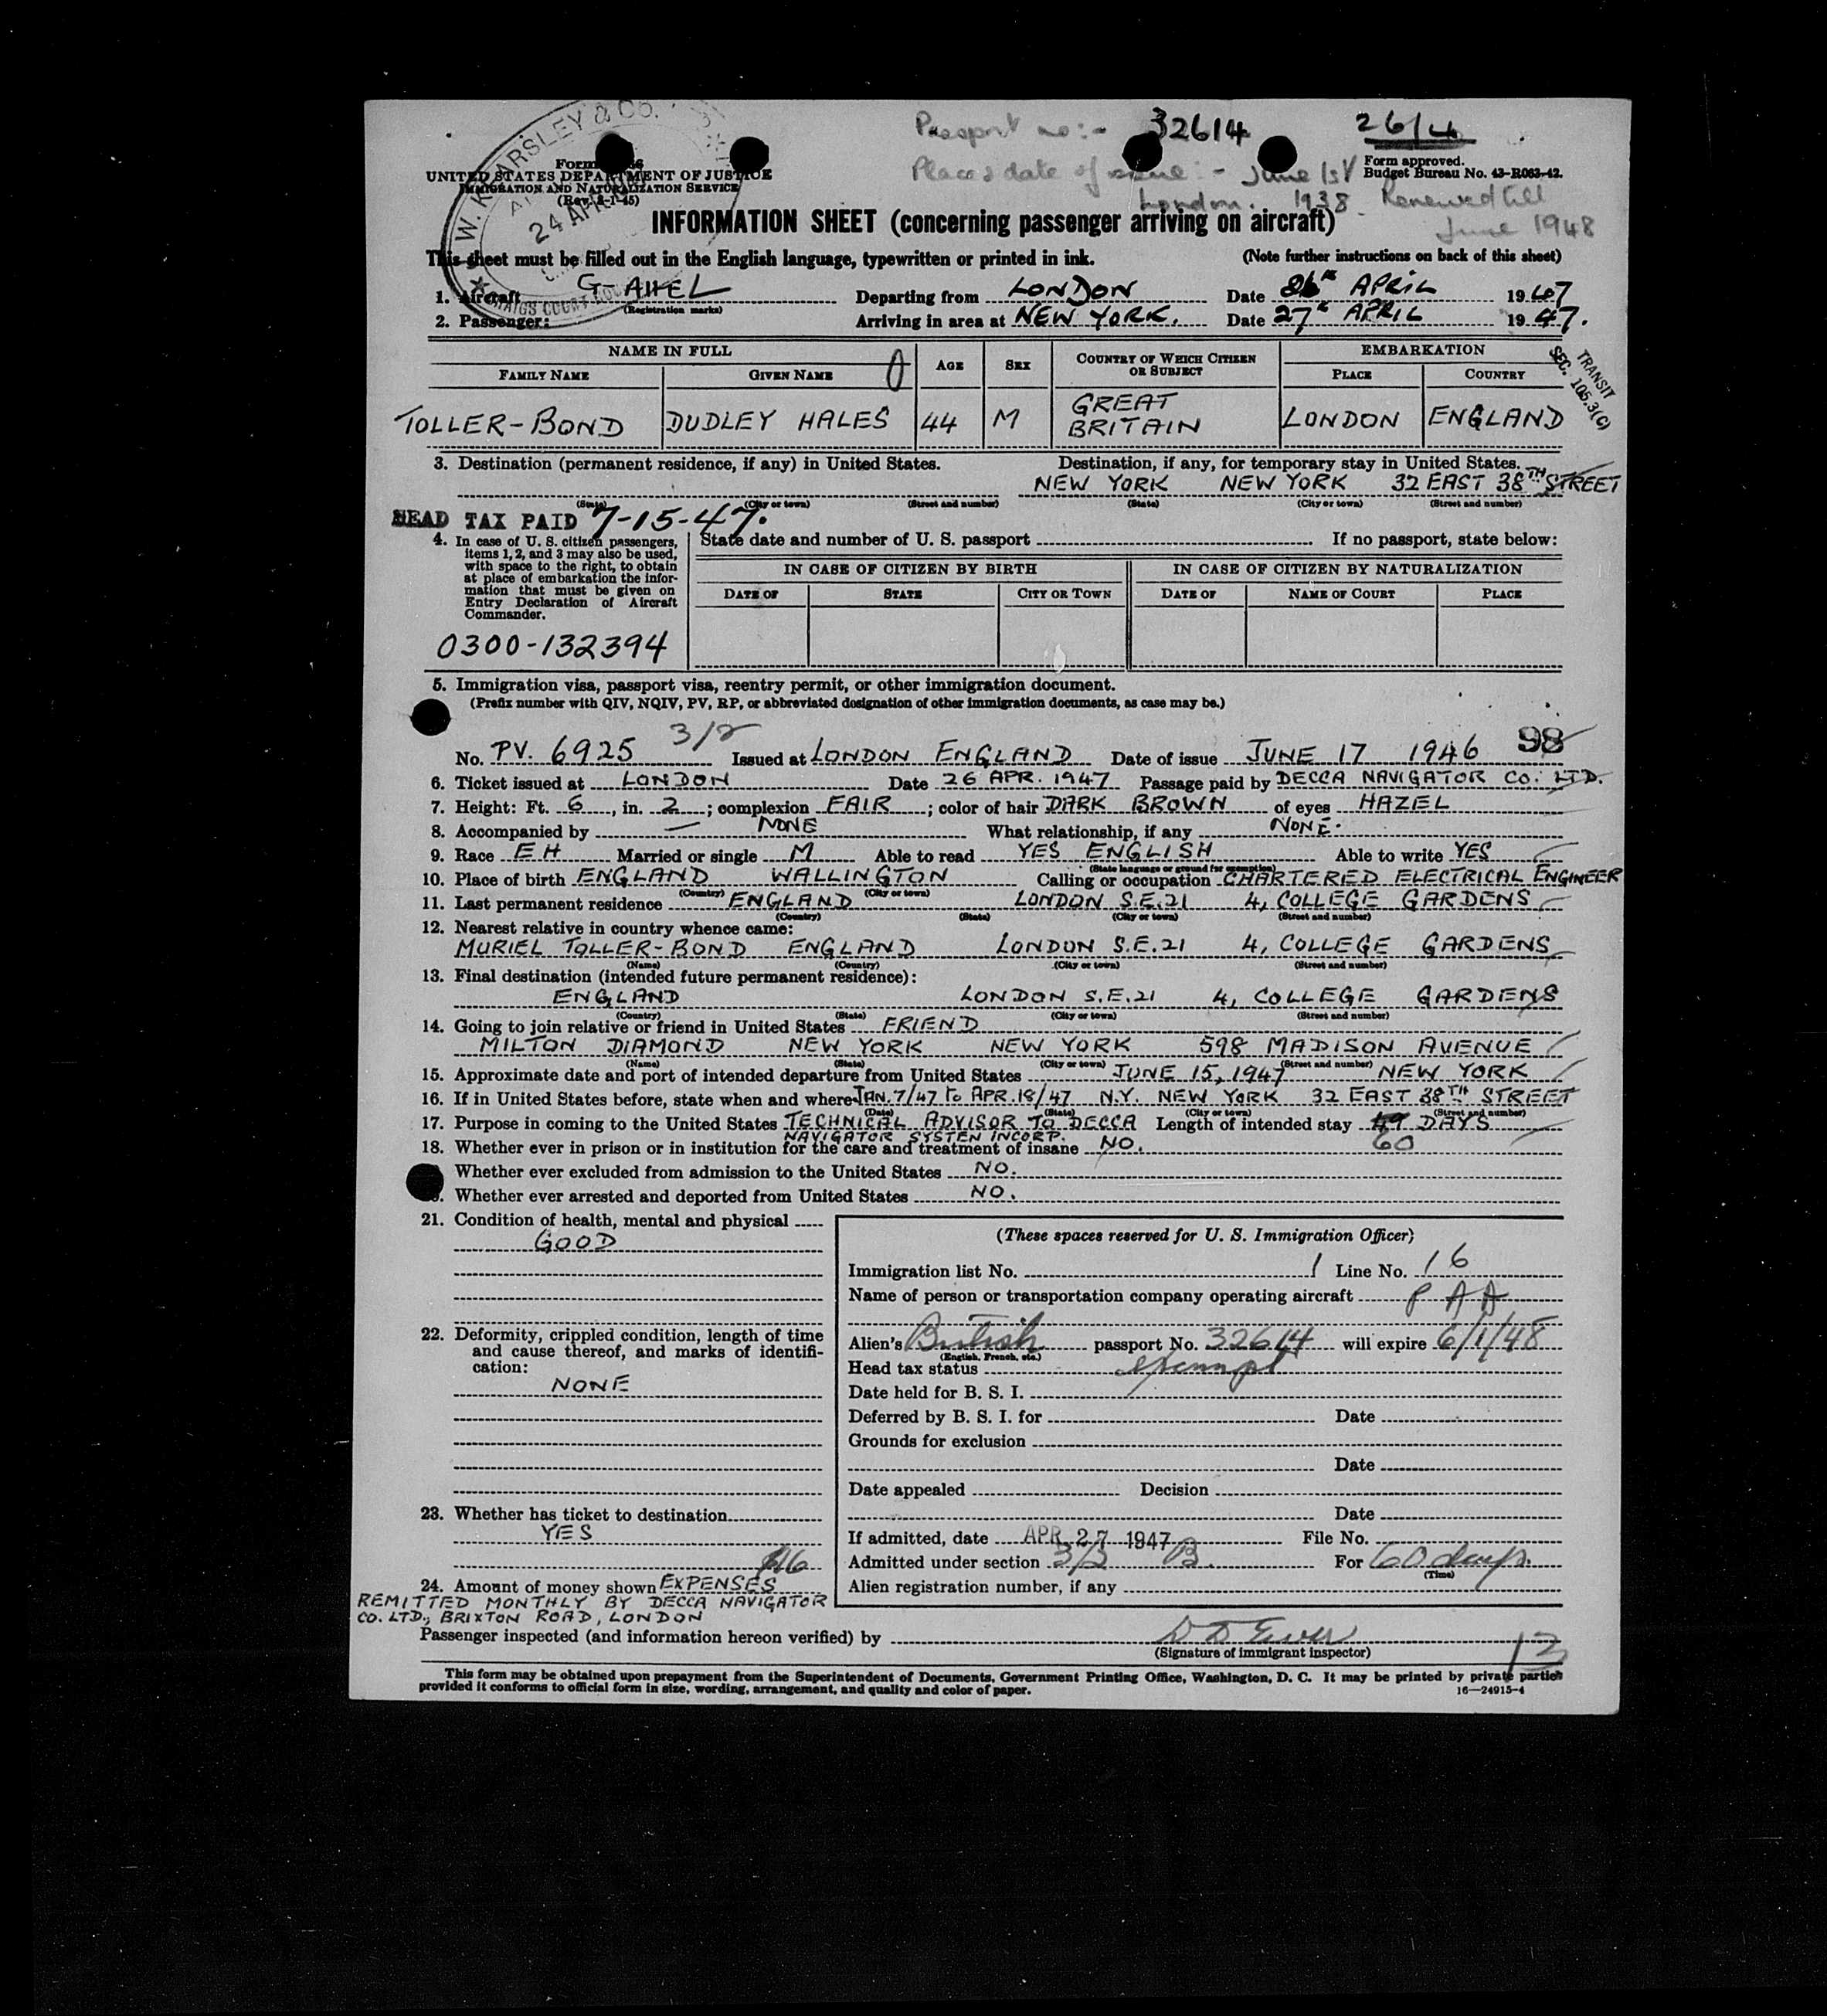 Passport no:- 32614 26/4
Form
UNITED STATES DEPARTMENT OF JUSTICE
IMMIGRATION AND NATURALIZATION SERVICE
(Rev. 2-1-45)
W. K. EARSLEY & CO.
24 APR
CRAIGS COURT
Place & date of issue:- June 1st
London. 1938. Renewed till
June 1948
Form approved.
Budget Bureau No. 43-R063-42.
INFORMATION SHEET (concerning passenger arriving on aircraft)
This sheet must be filled out in the English language, typewritten or printed in ink. (Note further instructions on back of this sheet)
1. Aircraft G-AHEL Departing from LONDON Date 26th APRIL 1947
(Registration marks)
2. Passenger: Arriving in area at NEW YORK. Date 27th APRIL 1947.
NAME IN FULL AGE SEX COUNTRY OF WHICH CITIZEN OR SUBJECT EMBARKATION
FAMILY NAME GIVEN NAME PLACE COUNTRY
TRANSIT
SEC. 105.3(C)
TOLLER-BOND DUDLEY HALES 44 M GREAT BRITAIN LONDON ENGLAND
3. Destination (permanent residence, if any) in United States. Destination, if any, for temporary stay in United States.
NEW YORK NEW YORK 32 EAST 38TH STREET
(State) (City or town) (Street and number) (State) (City or town) (Street and number)
HEAD TAX PAID 7-15-47.
4. In case of U. S. citizen passengers,
items 1, 2, and 3 may also be used,
with space to the right, to obtain
at place of embarkation the infor-
mation that must be given on
Entry Declaration of Aircraft
Commander.
0300-132394
State date and number of U. S. passport If no passport, state below:
IN CASE OF CITIZEN BY BIRTH IN CASE OF CITIZEN BY NATURALIZATION
DATE OF STATE CITY OR TOWN DATE OF NAME OF COURT PLACE
5. Immigration visa, passport visa, reentry permit, or other immigration document.
(Prefix number with QIV, NQIV, PV, RP, or abbreviated designation of other immigration documents, as case may be.)
3/2 98
No. PV. 6925 Issued at LONDON ENGLAND Date of issue JUNE 17 1946
6. Ticket issued at LONDON Date 26 APR. 1947 Passage paid by DECCA NAVIGATOR CO. LTD.
7. Height: Ft. 6, in. 2; complexion FAIR; color of hair DARK BROWN of eyes HAZEL
8. Accompanied by — NONE What relationship, if any NONE.
9. Race EH Married or single M Able to read YES ENGLISH Able to write YES
(State language or ground for exemption)
10. Place of birth ENGLAND WALLINGTON Calling or occupation CHARTERED ELECTRICAL ENGINEER
(Country) (City or town)
11. Last permanent residence ENGLAND LONDON S.E.21 4, COLLEGE GARDENS
(Country) (State) (City or town) (Street and number)
12. Nearest relative in country whence came:
MURIEL TOLLER-BOND ENGLAND LONDON S.E.21 4, COLLEGE GARDENS
(Name) (Country) (City or town) (Street and number)
13. Final destination (intended future permanent residence):
ENGLAND LONDON S.E.21 4, COLLEGE GARDENS
(Country) (State) (City or town) (Street and number)
14. Going to join relative or friend in United States FRIEND
MILTON DIAMOND NEW YORK NEW YORK 598 MADISON AVENUE
(Name) (State) (City or town) (Street and number)
15. Approximate date and port of intended departure from United States JUNE 15, 1947 NEW YORK
16. If in United States before, state when and where JAN. 7/47 TO APR. 18/47 N.Y. NEW YORK 32 EAST 38TH STREET
(Date) (State) (City or town) (Street and number)
17. Purpose in coming to the United States TECHNICAL ADVISOR TO DECCA Length of intended stay 49 DAYS
NAVIGATOR SYSTEN INCORP. 60
18. Whether ever in prison or in institution for the care and treatment of insane NO.
Whether ever excluded from admission to the United States NO.
Whether ever arrested and deported from United States NO.
21. Condition of health, mental and physical
GOOD
22. Deformity, crippled condition, length of time
and cause thereof, and marks of identifi-
cation:
NONE
23. Whether has ticket to destination
YES
24. Amount of money shown EXPENSES
REMITTED MONTHLY BY DECCA NAVIGATOR
CO. LTD., BRIXTON ROAD, LONDON
(These spaces reserved for U. S. Immigration Officer)
Immigration list No. 1 Line No. 16
Name of person or transportation company operating aircraft P A A
Alien's British passport No. 32614 will expire 6/1/48
(English, French, etc.)
Head tax status exempt
Date held for B. S. I.
Deferred by B. S. I. for Date
Grounds for exclusion
Date
Date appealed Decision
Date
If admitted, date APR 27 1947 File No.
Admitted under section 3/2 B. For 60 days.
(Time)
Alien registration number, if any
Passenger inspected (and information hereon verified) by
(Signature of immigrant inspector)
12
This form may be obtained upon prepayment from the Superintendent of Documents, Government Printing Office, Washington, D. C. It may be printed by private parties
provided it conforms to official form in size, wording, arrangement, and quality and color of paper. 16—24915-4